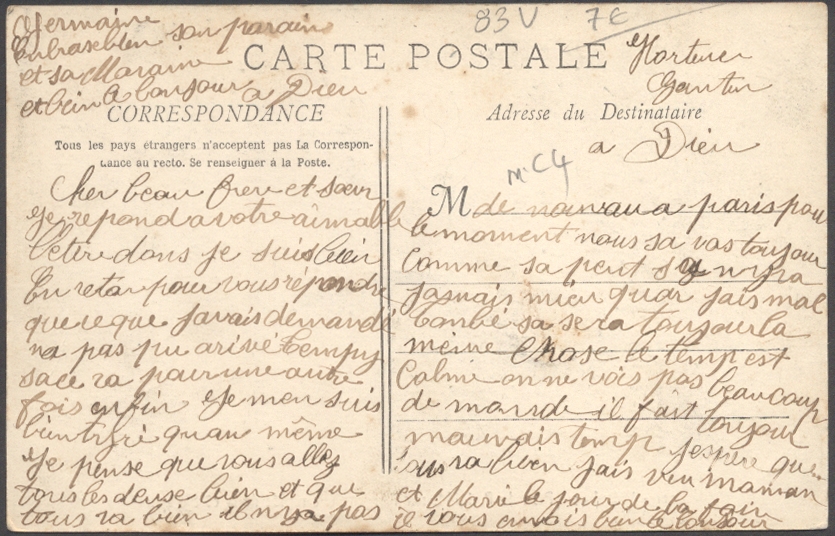 Germaine
Enbrasebien son parain
et sa Maraine
et bein bonjour a Dieu
83V 7€
CARTE POSTALE
Hortense
a Dieu
CORRESPONDANCE
Tous les pays étrangers n'acceptent pas La Correspon-
dance au recto. Se renseigner à la Poste.
Cher beau frere et sœur
Je repond a votre aimable
letre dons je suis bien
En retar pour vous répondre
que ce que Javais demandé
na pas pu arivé
sa ce ra pour une autre
fois enfin Je men suis
bien quan même
Je pense que vous allez
tous les deuse bien et que
tous va bien il nya pas
Adresse du Destinataire
M de nouvau a paris pour
le moment nous sa vas toujour
Comme sa peut
Jasmais mieu quar jais mal
tonbé sa sera toujour la
meme chose le temp est
Calme on ne vois pas beaucoup
de monde il fait toujour
mauvais temp Jespère que
sa ra bien jais veu maman
et Marie le jour de la
il vous envois bien le bonjour